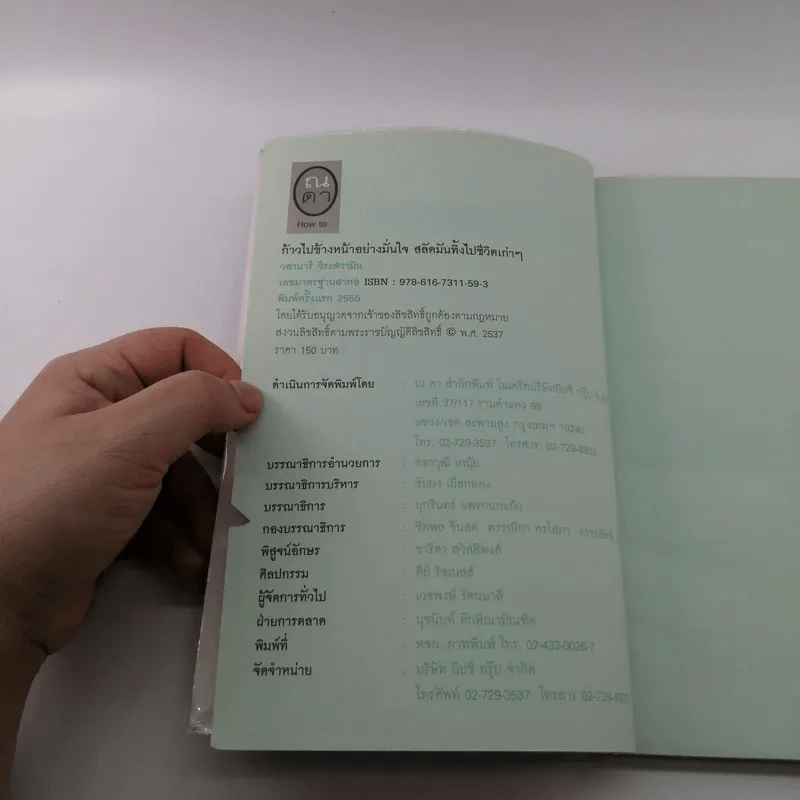 ณ
ดา
How to
ก้าวไปข้างหน้าอย่างมั่นใจ สลัดมันทิ้งไปชีวิตเก่าๆ
วสานารี วีระสวามิน
เลขมาตรฐานสากล ISBN : 978-616-7311-59-3
พิมพ์ครั้งแรก 2555
โดยได้รับอนุญาตจากเจ้าของลิขสิทธิ์ถูกต้องตามกฎหมาย
สงวนลิขสิทธิ์ตามพระราชบัญญัติลิขสิทธิ์ © พ.ศ. 2537
ราคา 150 บาท
ดำเนินการจัดพิมพ์โดย : ณ ดา สำนักพิมพ์ ในเครือบริษัทบีปซี กรุ๊ป
เลขที่ 37/117 รามคำแหง 98
แขวง/เขต สะพานสูง กรุงเทพฯ 10240
โทร. 02-729-3537 โทรสาร. 02-729-4933
บรรณาธิการอำนวยการ :
บรรณาธิการบริหาร :
บรรณาธิการ : มุกรินทร์ แพรกนกแก้ว
กองบรรณาธิการ :
พิสูจน์อักษร : ชาริดา สวัสดิพงศ์
ศิลปกรรม : คีย์
ผู้จัดการทั่วไป : เวชพงษ์ รัตนมาลี
ฝ่ายการตลาด : นุชนันท์ ทักษิณาบัณฑิต
พิมพ์ที่ : หจก. ภาพพิมพ์ โทร. 02-433-0026-7
จัดจำหน่าย : บริษัท บีปซี กรุ๊ป จำกัด
โทรศัพท์ 02-729-3537 โทรสาร 02-729-4933